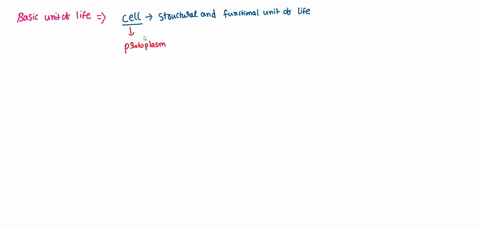 Basic unit of life => cell → Structural and functional unit of life
↓
protoplasm